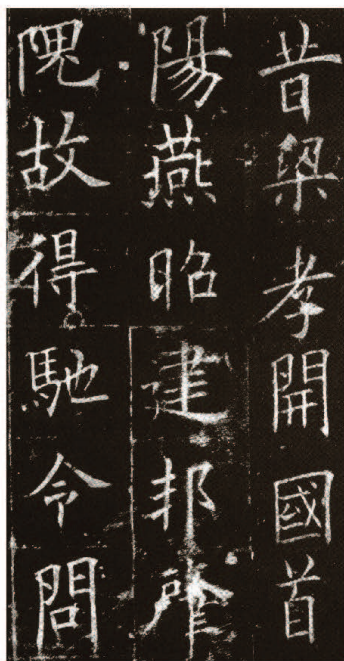 昔梁孝開國首
陽燕昭建邦
隗故得馳令問